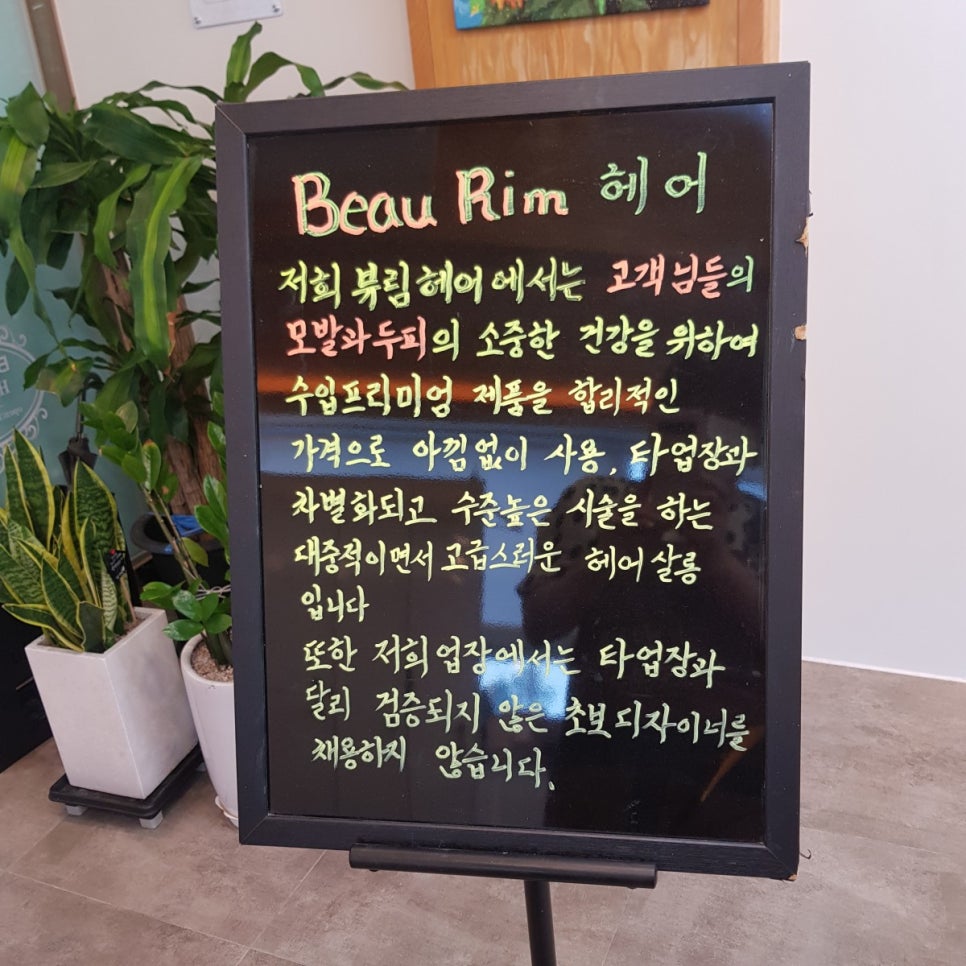 Beau Rim 헤어
저희 뷰림헤어에서는 고객님들의
모발과두피의 소중한 건강을 위하여
수입프리미엄 제품을 합리적인
가격으로 아낌없이 사용, 타업장과
차별화되고 수준높은 시술을 하는
대중적이면서 고급스러운 헤어살롱
입니다
또한 저희업장에서는 타업장과
달리 검증되지 않은 초보디자이너를
채용하지 않습니다.